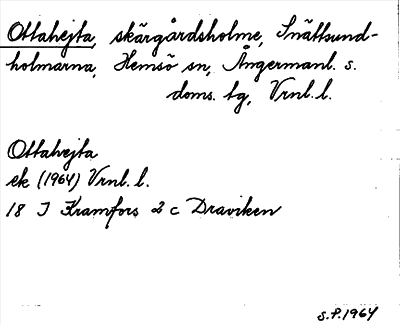 Ottahejta, skärgårdsholme, Snättsund-
holmarna, Hemsö sn, Ångermanl. s.
doms. tg, Vrnl. l.
Ottahejta
ek (1964) Vrnl. l.
18 I Kramfors 2 c Draviken
S.P. 1964